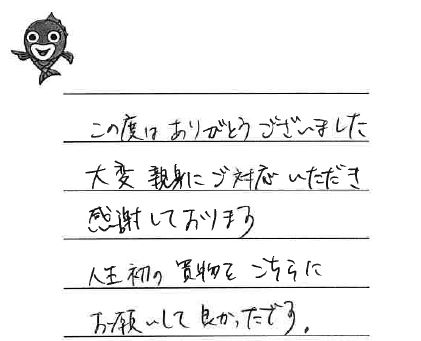 この度は ありがとうございました
大変 親身にご対応いただき
感謝しております
人生初の買物を こちらに
お願いして良かったです。